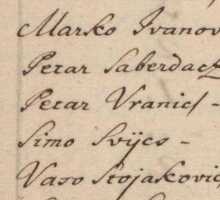 Marko Ivanov
Petar Saberdac
Petar Vranich -
Simo Svijcs -
Vaso Stojakovic